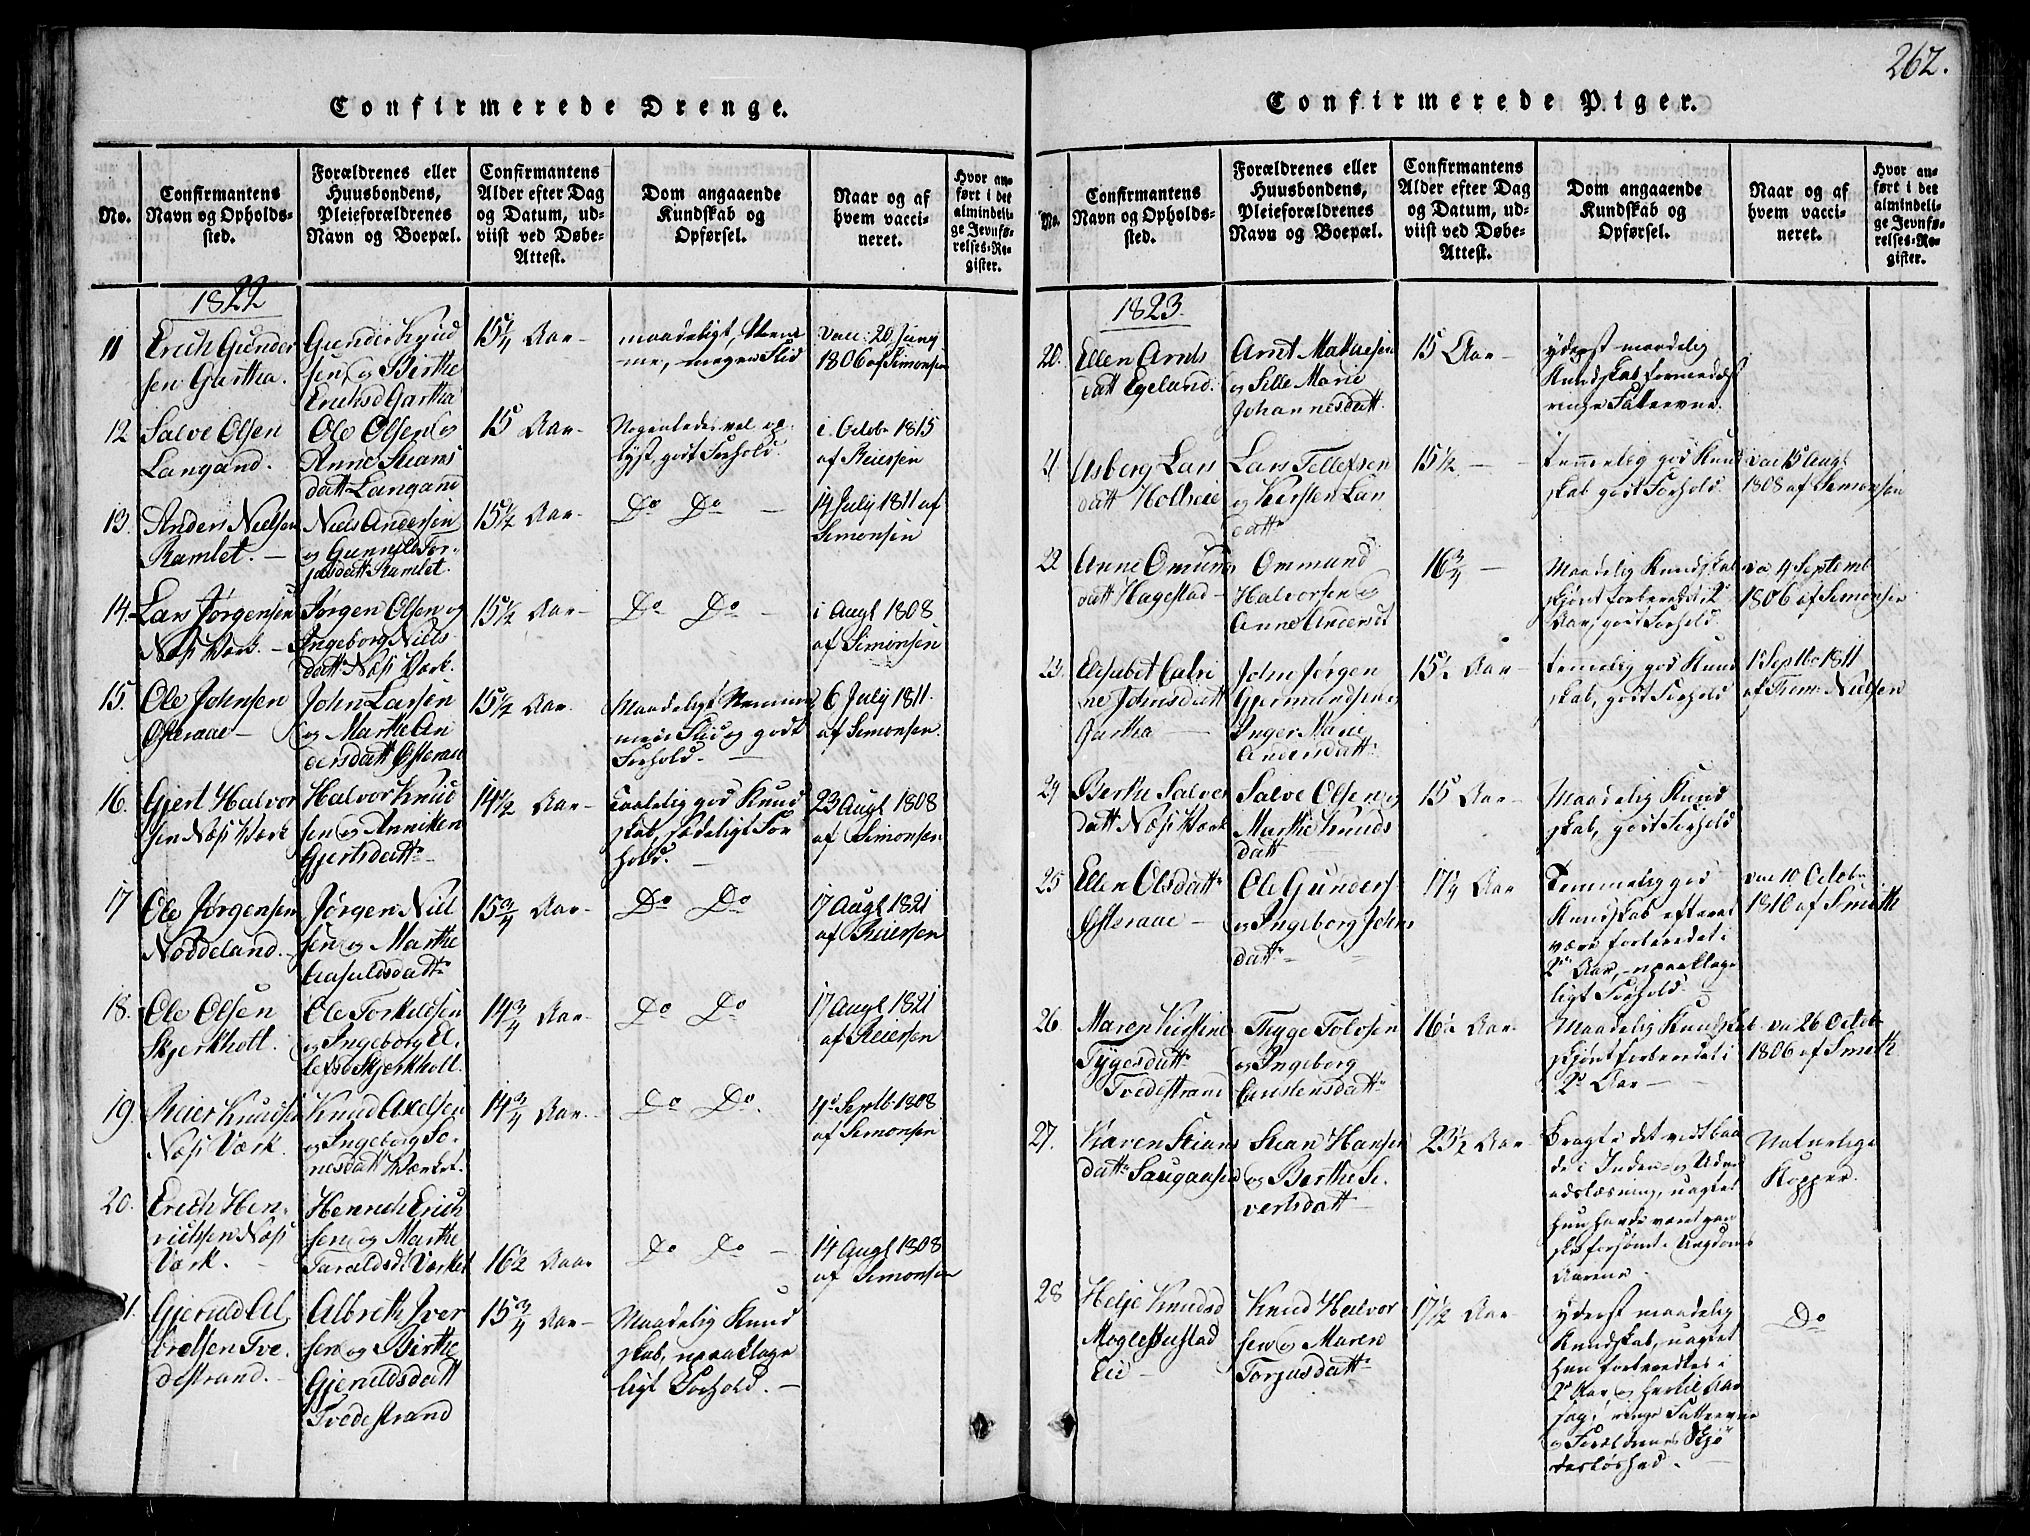 262.
Confirmerede Drenge.
No.
Confirmantens
Navn og Opholds-
sted.
Forældrenes eller
Huusbondens,
Pleieforældrenes
Navn og Boepæl.
Confirmantens
Alder efter Dag
og Datum, ud-
viist ved Døbe-
Attest.
Dom angaaende
Kundskab og
Opførsel.
Naar og af
hvem vacci-
neret.
Hvor an-
ført i det
almindeli-
ge Jevnfø-
relses-Re-
gister.
1822
11
Erich Gunder
sen Gartha.
Gunder Knud
sen og Birthe
Erichsd Gartha
15 1/4 Aar
maadeligt, Nem
me, megen Flid
vacc: 20 Juny
1806 af Simonsen
12
Salve Olsen
Langand.
Ole Olsen og
Anne Stians
datt Langand
15 Aar
Nogenledes vel op-
lyst, godt Forhold.
i Octobr 1815
af Reiersen
13.
Anders Nielsen
Ramlet.
Niels Andersen
og Gunnild Tor-
jusdatt Ramlet.
15 1/2 Aar
Do Do
14 July 1811 af
Simonsen
14.
Lars Jørgensen
Næs Værk.
Jørgen Olsen og
Ingeborg Niels
datt Næs Værk.
15 1/2 Aar
Do Do
i Augt 1808
af Simonsen
15.
Ole Johnsen
Østeraae
John Larsen
og Marthe An
dersdatt Østeraae
15 1/2 Aar
Maadeligt Nemme,
meer Flid og godt
Forhold.
6 July 1811.
af Simonsen
16.
Gjert Halvor
sen Næs Værk
Halvor Knud
sen og Anniken
Gjertsdattr
14 1/2 Aar
Taalelig god Kund
skab, sædeligt For
hold.
23 Augt 1808
af Simonsen
17
Ole Jørgensen
Noddeland.
Jørgen Niel
sen og Marthe
15 3/4 Aar
Do Do
17 Augt 1821
af Reiersen
18.
Ole Olsen
Skjerkholt.
Ole Torkildsen
og Ingeborg El-
lefsd Skjerkholt.
14 3/4 Aar
Do Do
17 Augt 1821
af Reiersen
19.
Reier Knudsen
Næs Værk.
Knud Axelsen
og Ingeborg To-
nesdatt Værket.
14 3/4 Aar
Do Do.
4de Septb. 1808
af Simonsen
20.
Erich Hen-
richsen Næs
Værk.
Henrich Erich
sen og Marthe
Taraldsd Værket
16 1/2 Aar
Do Do
14 Augt 1808
af Simonsen
21.
Gjeruld Al
bretsen Tve-
destrand.
Albreth Iver
sen og Birthe
Gjeruldsdatt
Tvedestrand
15 3/4 Aar
Maadelig Kund
skab, upaaklage
ligt Forhold.
Confirmerede Piger.
No.
Confirmantens
Navn og Opholds-
sted.
Forældrenes eller
Huusbondens,
Pleieforældrenes
Navn og Boepæl.
Confirmantens
Alder efter Dag
og Datum, ud-
viist ved Døbe-
Attest.
Dom angaaende
Kundskab og
Opførsel.
Naar og af
hvem vacci-
neret.
Hvor an-
ført i det
almindeli-
ge Jevnfø-
relses-Re-
gister.
1823.
20.
Ellen Arnts
datt Egeland.
Arnt Mathiesen
og Sille Marie
Johannesdatt.
15 Aar
yderst maadelig
Kundskab formedelst
ringe Fatteevne.
21
Asberg Lars
datt Holteie
Lars Tellefsen
og Kirsten Lars
datt
15 1/2
temmelig god Kund
skab godt Forhold
vac 15 Augt
1808 af Simonsen
22
Anne Omunds
datt Hagestad
Ommund
Halvorsen og
Anne Andersd
16 3/4
Maadelig Kundskab
skjønt forberedt i 2
Aar, godt Forhold.
va 4 Septemb
1806 af Simonsen
23.
Elisabet Cathri
ne Johnsdatt
Gartha
John Jørgen
Gjermundsen og
Inger Marie
Andersdatt.
15 1/2 Aar
temelig god Kund
skab, godt Forhold
1 Septbr 1811
af Nielsen
24
Berthe Salves
datt Næs Værk
Salve Olsen og
Marthe Knuds
datt
15 Aar
Maadelig Kund
skab, godt Forhold
25
Ellen Olsdattr
Østeraae
Ole Gunders
og Ingeborg Johns
dattr
17 1/2 Aar
Temmelig god
Kundskab efter at
være forberedet i
2de Aar, upaaklage
ligt Forhold.
vac 10 Octobr
1810 af Smith
26
Maren Kirstine
Tygesdattr
Tvedestrand
Thyge Tolvsen
og Ingeborg
Carstensdattr
16 1/2 Aar
Maadelig Kundskab
skjønt forberedet i
2de Aar
va 26 Octobr
1806 af Smith
27.
Karen Stians
dattr
Stian Hansen
og Berthe Si-
vertsdatt
23 1/2 Aar
Bragte det vidt baa
de i Inden- og Uden
adslæsning, uagtet
hun havde været gan
ske forsømt i Ungdoms
Aarene.
Naturlige
Kopper.
28
Helje Knudsd
Moglestustad
Eie
Knud Halvor
sen og Maren
Torjusdattr
17 1/2 Aar
yderst maadelig
Kundskab, uagtet
hun forberedtes i
2de Aar og hertil Aar
sag, ringe Fatteevne
og Forældrenes Skjø
desløshed.
Do